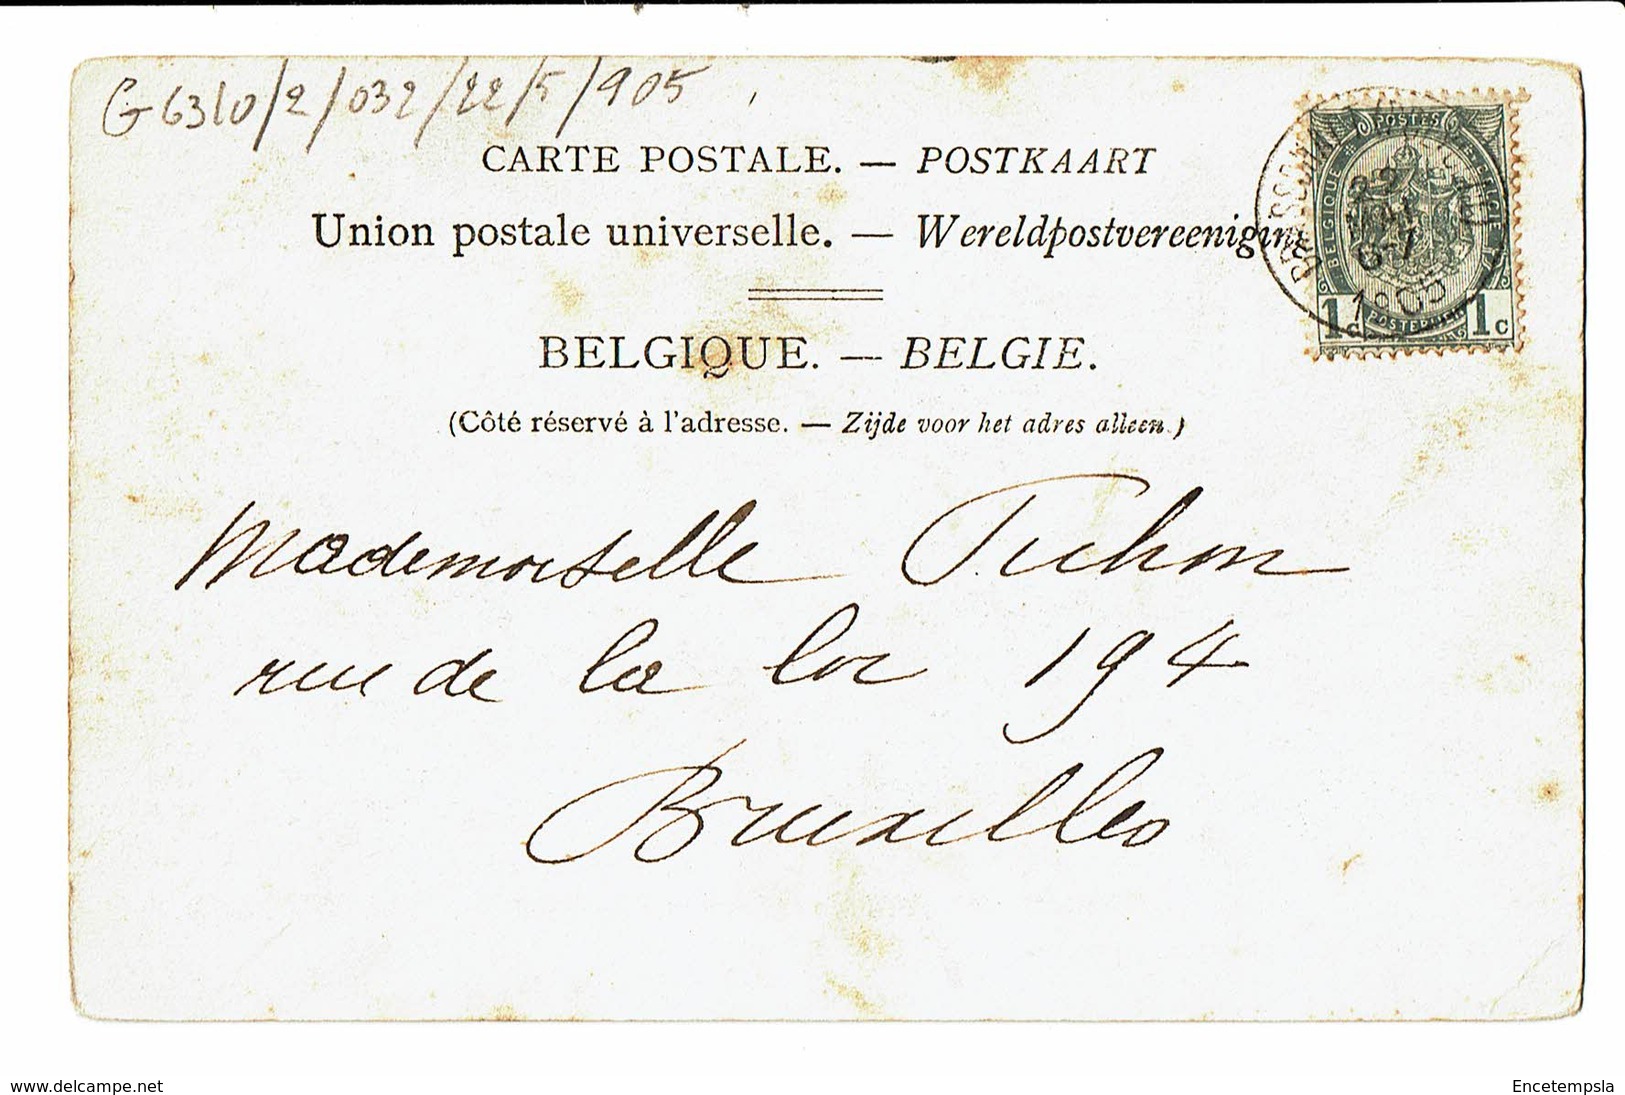 G6310/2/032/22/5/905
CARTE POSTALE. — POSTKAART
Union postale universelle. — Wereldpostvereeniging
BELGIQUE. — BELGIE.
(Côté réservé à l'adresse. — Zijde voor het adres alleen.)
POSTES
BELGIQUE
BELGIË
1c 1c
POSTERIJEN
1905
Mademoiselle Tichon
rue de la loi 194
Bruxelles
www.delcampe.net
Encetempsla